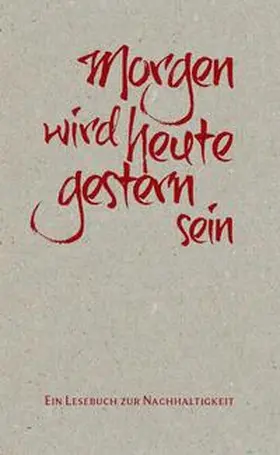 Morgen
wird heute
gestern
sein
Ein Lesebuch zur Nachhaltigkeit